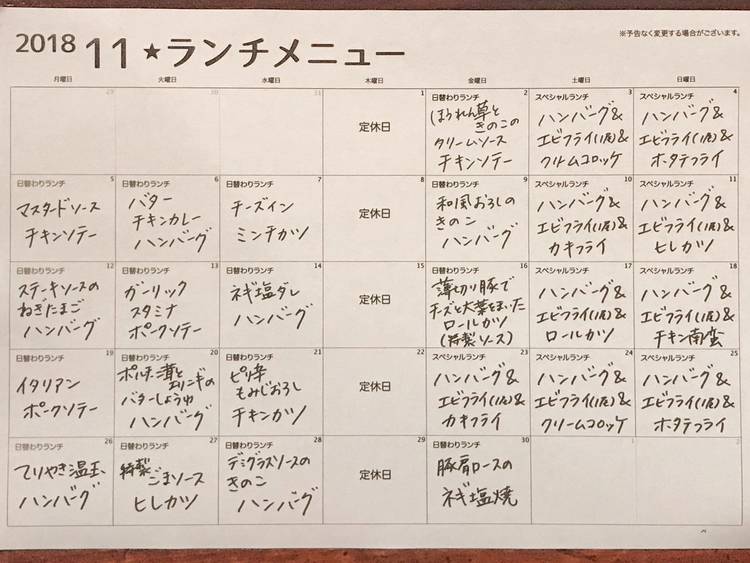 2018 11 ★ランチメニュー
※予告なく変更する場合がございます。
月曜日 火曜日 水曜日 木曜日 金曜日 土曜日 日曜日
29
30
31
1
定休日
日替わりランチ 2
ほうれん草と
きのこの
クリームソース
チキンソテー
スペシャルランチ 3
ハンバーグ&
エビフライ(1尾)&
クリームコロッケ
スペシャルランチ 4
ハンバーグ&
エビフライ(1尾)&
ホタテフライ
日替わりランチ 5
マスタードソース
チキンソテー
日替わりランチ 6
バター
チキンカレー
ハンバーグ
日替わりランチ 7
チーズイン
ミンチカツ
8
定休日
日替わりランチ 9
和風おろしの
きのこ
ハンバーグ
スペシャルランチ 10
ハンバーグ&
エビフライ(1尾)&
カキフライ
スペシャルランチ 11
ハンバーグ&
エビフライ(1尾)&
ヒレカツ
日替わりランチ 12
ステーキソースの
ねぎたまご
ハンバーグ
日替わりランチ 13
ガーリック
スタミナ
ポークソテー
日替わりランチ 14
ネギ塩ダレ
ハンバーグ
15
定休日
日替わりランチ 16
薄切り豚で
チーズと大葉をまいた
ロールカツ
(特製ソース)
スペシャルランチ 17
ハンバーグ&
エビフライ(1尾)&
ロールカツ
スペシャルランチ 18
ハンバーグ&
エビフライ(1尾)&
チキン南蛮
日替わりランチ 19
イタリアン
ポークソテー
日替わりランチ 20
ポルチーニ茸と
エリンギの
バターしょうゆ
ハンバーグ
日替わりランチ 21
ピリ辛
もみじおろし
チキンカツ
22
定休日
スペシャルランチ 23
ハンバーグ&
エビフライ(1尾)&
カキフライ
スペシャルランチ 24
ハンバーグ&
エビフライ(1尾)&
クリームコロッケ
スペシャルランチ 25
ハンバーグ&
エビフライ(1尾)&
ホタテフライ
日替わりランチ 26
てりやき温玉
ハンバーグ
日替わりランチ 27
特製
ごまソース
ヒレカツ
日替わりランチ 28
デミグラスソースの
きのこ
ハンバーグ
29
定休日
日替わりランチ 30
豚肩ロースの
ネギ塩焼
1
2